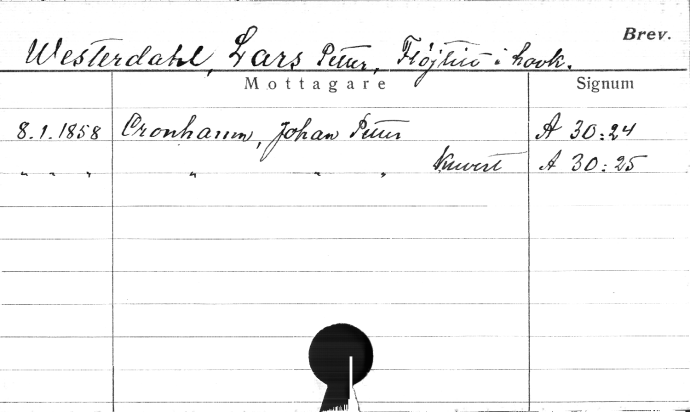 Brev.
Westerdahl, Lars Petter, Flöjtist i hovk.
Mottagare Signum
8.1.1858 Cronhamn, Johan Petter A 30:24
" " " " " " Kuvert A 30:25